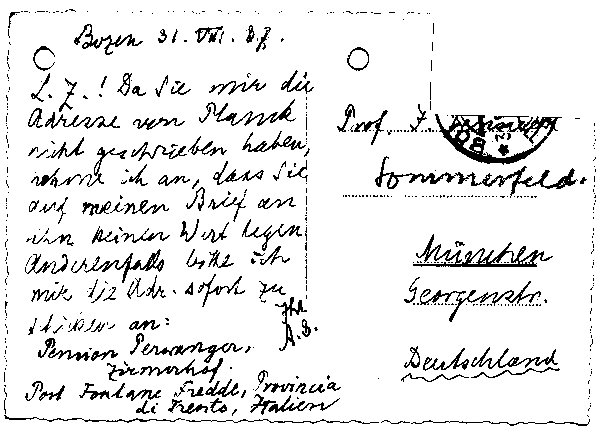 Bozen 31. VIII.
L. Z.! Da Sie mir die
Adresse von Planck
nicht geschrieben haben,
nehme ich an, dass Sie
auf meinen Brief an
ihn keinen Wert legen
Anderenfalls bitte ich
mir die Adr. sofort zu
schicken an:
Ihr
Pension Perwanger,
Zirmerhof.
Post Fontane Fredde, Provincia
di Trento, Italien
Prof.
Sommerfeld.
München
Georgenstr.
Deutschland